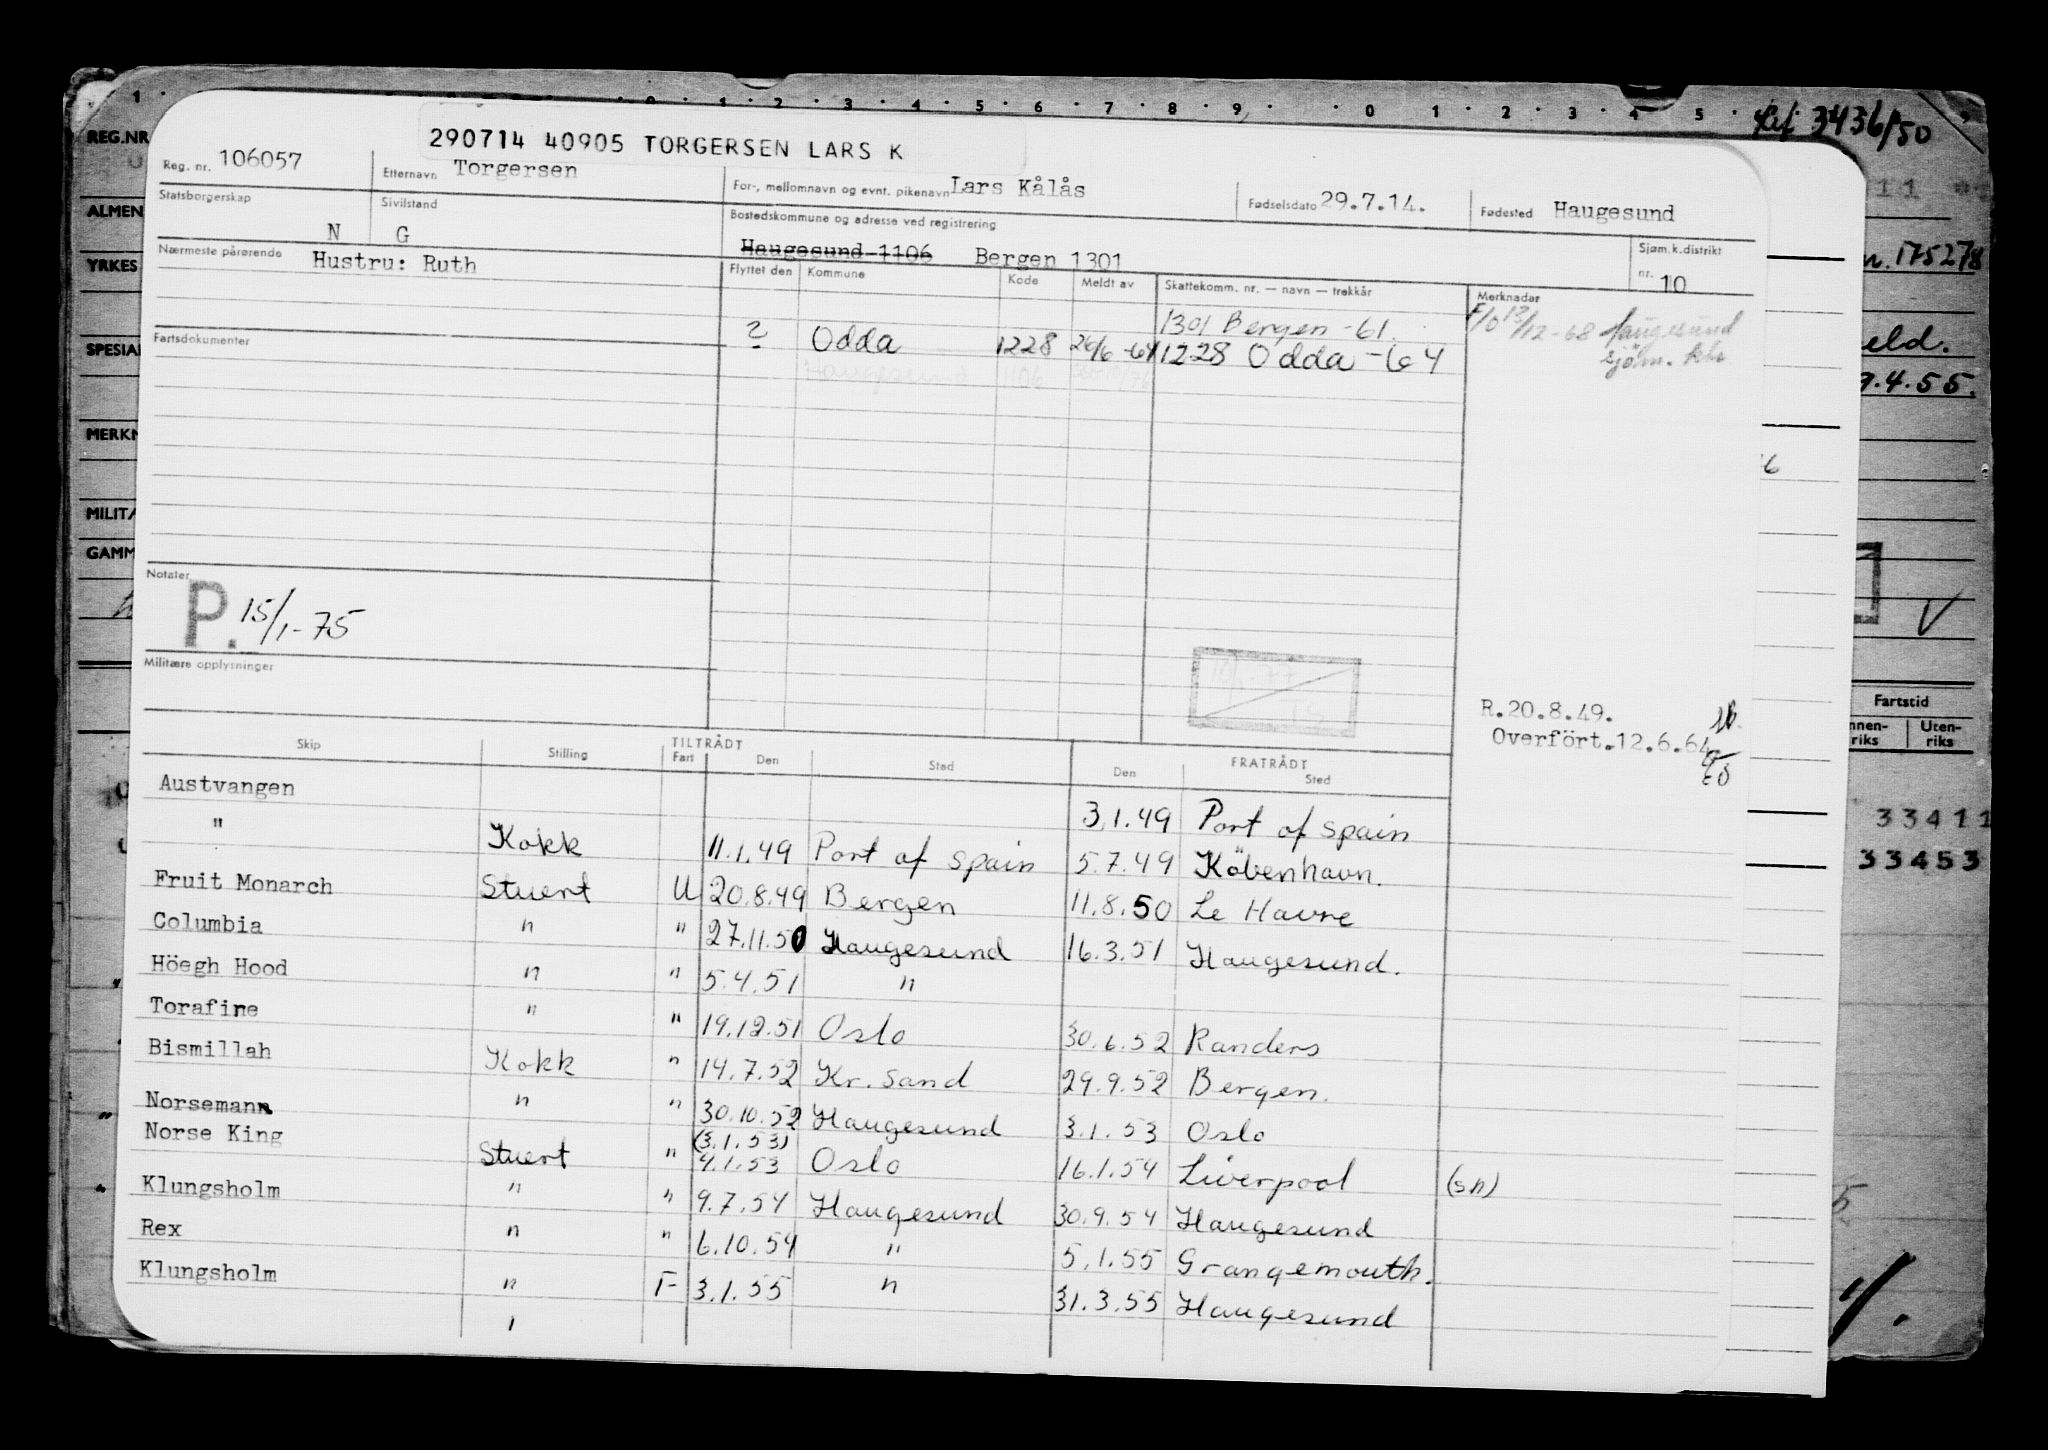 1 2 3 4 5 6 7 8 9 0 1 2 3 4 5
3436/50
REG.NR
290714 40905 TORGERSEN LARS K
Reg. nr. 106057 Etternavn Torgersen For-, mellomnavn og evnt. pikenavn Lars Kålås Fødselsdato 29.7.14. Fødested Haugesund
11
ALMEN
Statsborgerskap N Sivilstand G Bostedskommune og adresse ved registrering
Haugesund 1106 Bergen 1301 Sjøm.k.distrikt nr. 10
175278
YRKES
Nærmeste pårørende Hustru: Ruth
Flyttet den Kommune Kode Meldt av Skattekomm. nr. — navn — trekkår Merknader
1301 Bergen -61. F/O 13/12-68 Haugesund
sjöm. ktr.
SPESIAL
eld.
Fartsdokumenter ? Odda 1228 26/6-64 1228 Odda -64
Haugesund 1106
9.4.55.
MERKN
MILITÆ
GAMM
Notater
P. 15/1-75
V
Militære opplysninger
10/1-77
R.20.8.49.
Overfört.12.6.64
Fartstid
nnen-riks Uten-riks
Skip Stilling TILTRÅDT Fart Den Sted FRATRÅDT Den Sted
Austvangen 3.1.49 Port of Spain
" Kokk 11.1.49 Port of Spain 5.7.49 Köbenhavn.
Fruit Monarch Stuert U 20.8.49 Bergen 11.8.50 Le Havre
Columbia " " 27.11.50 Haugesund 16.3.51 Haugesund.
Höegh Hood " " 5.4.51 "
Torafire " " 19.12.51 Oslo 30.6.52 Randers
Bismillah Kokk " 14.7.52 Kr. Sand 29.9.52 Bergen.
Norsemann " " 30.10.52 Haugesund 3.1.53 Oslo
(3.1.53)
Norse King Stuert " 4.1.53 Oslo 16.1.54 Liverpool (sh)
Klungsholm " " 9.7.54 Haugesund 30.9.54 Haugesund
Rex " " 6.10.54 " 5.1.55 Grangemouth.
Klungsholm " F 3.1.55 " 31.3.55 Haugesund
33411
33453